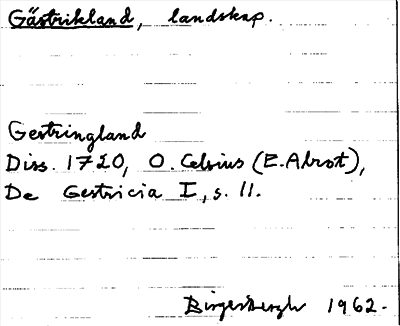 Gästrikland, landskap.
Gestringland
Diss. 1720, O. Celsius (E. Abrot),
De Gestricia I, s. 11.
Birger Bergh 1962.